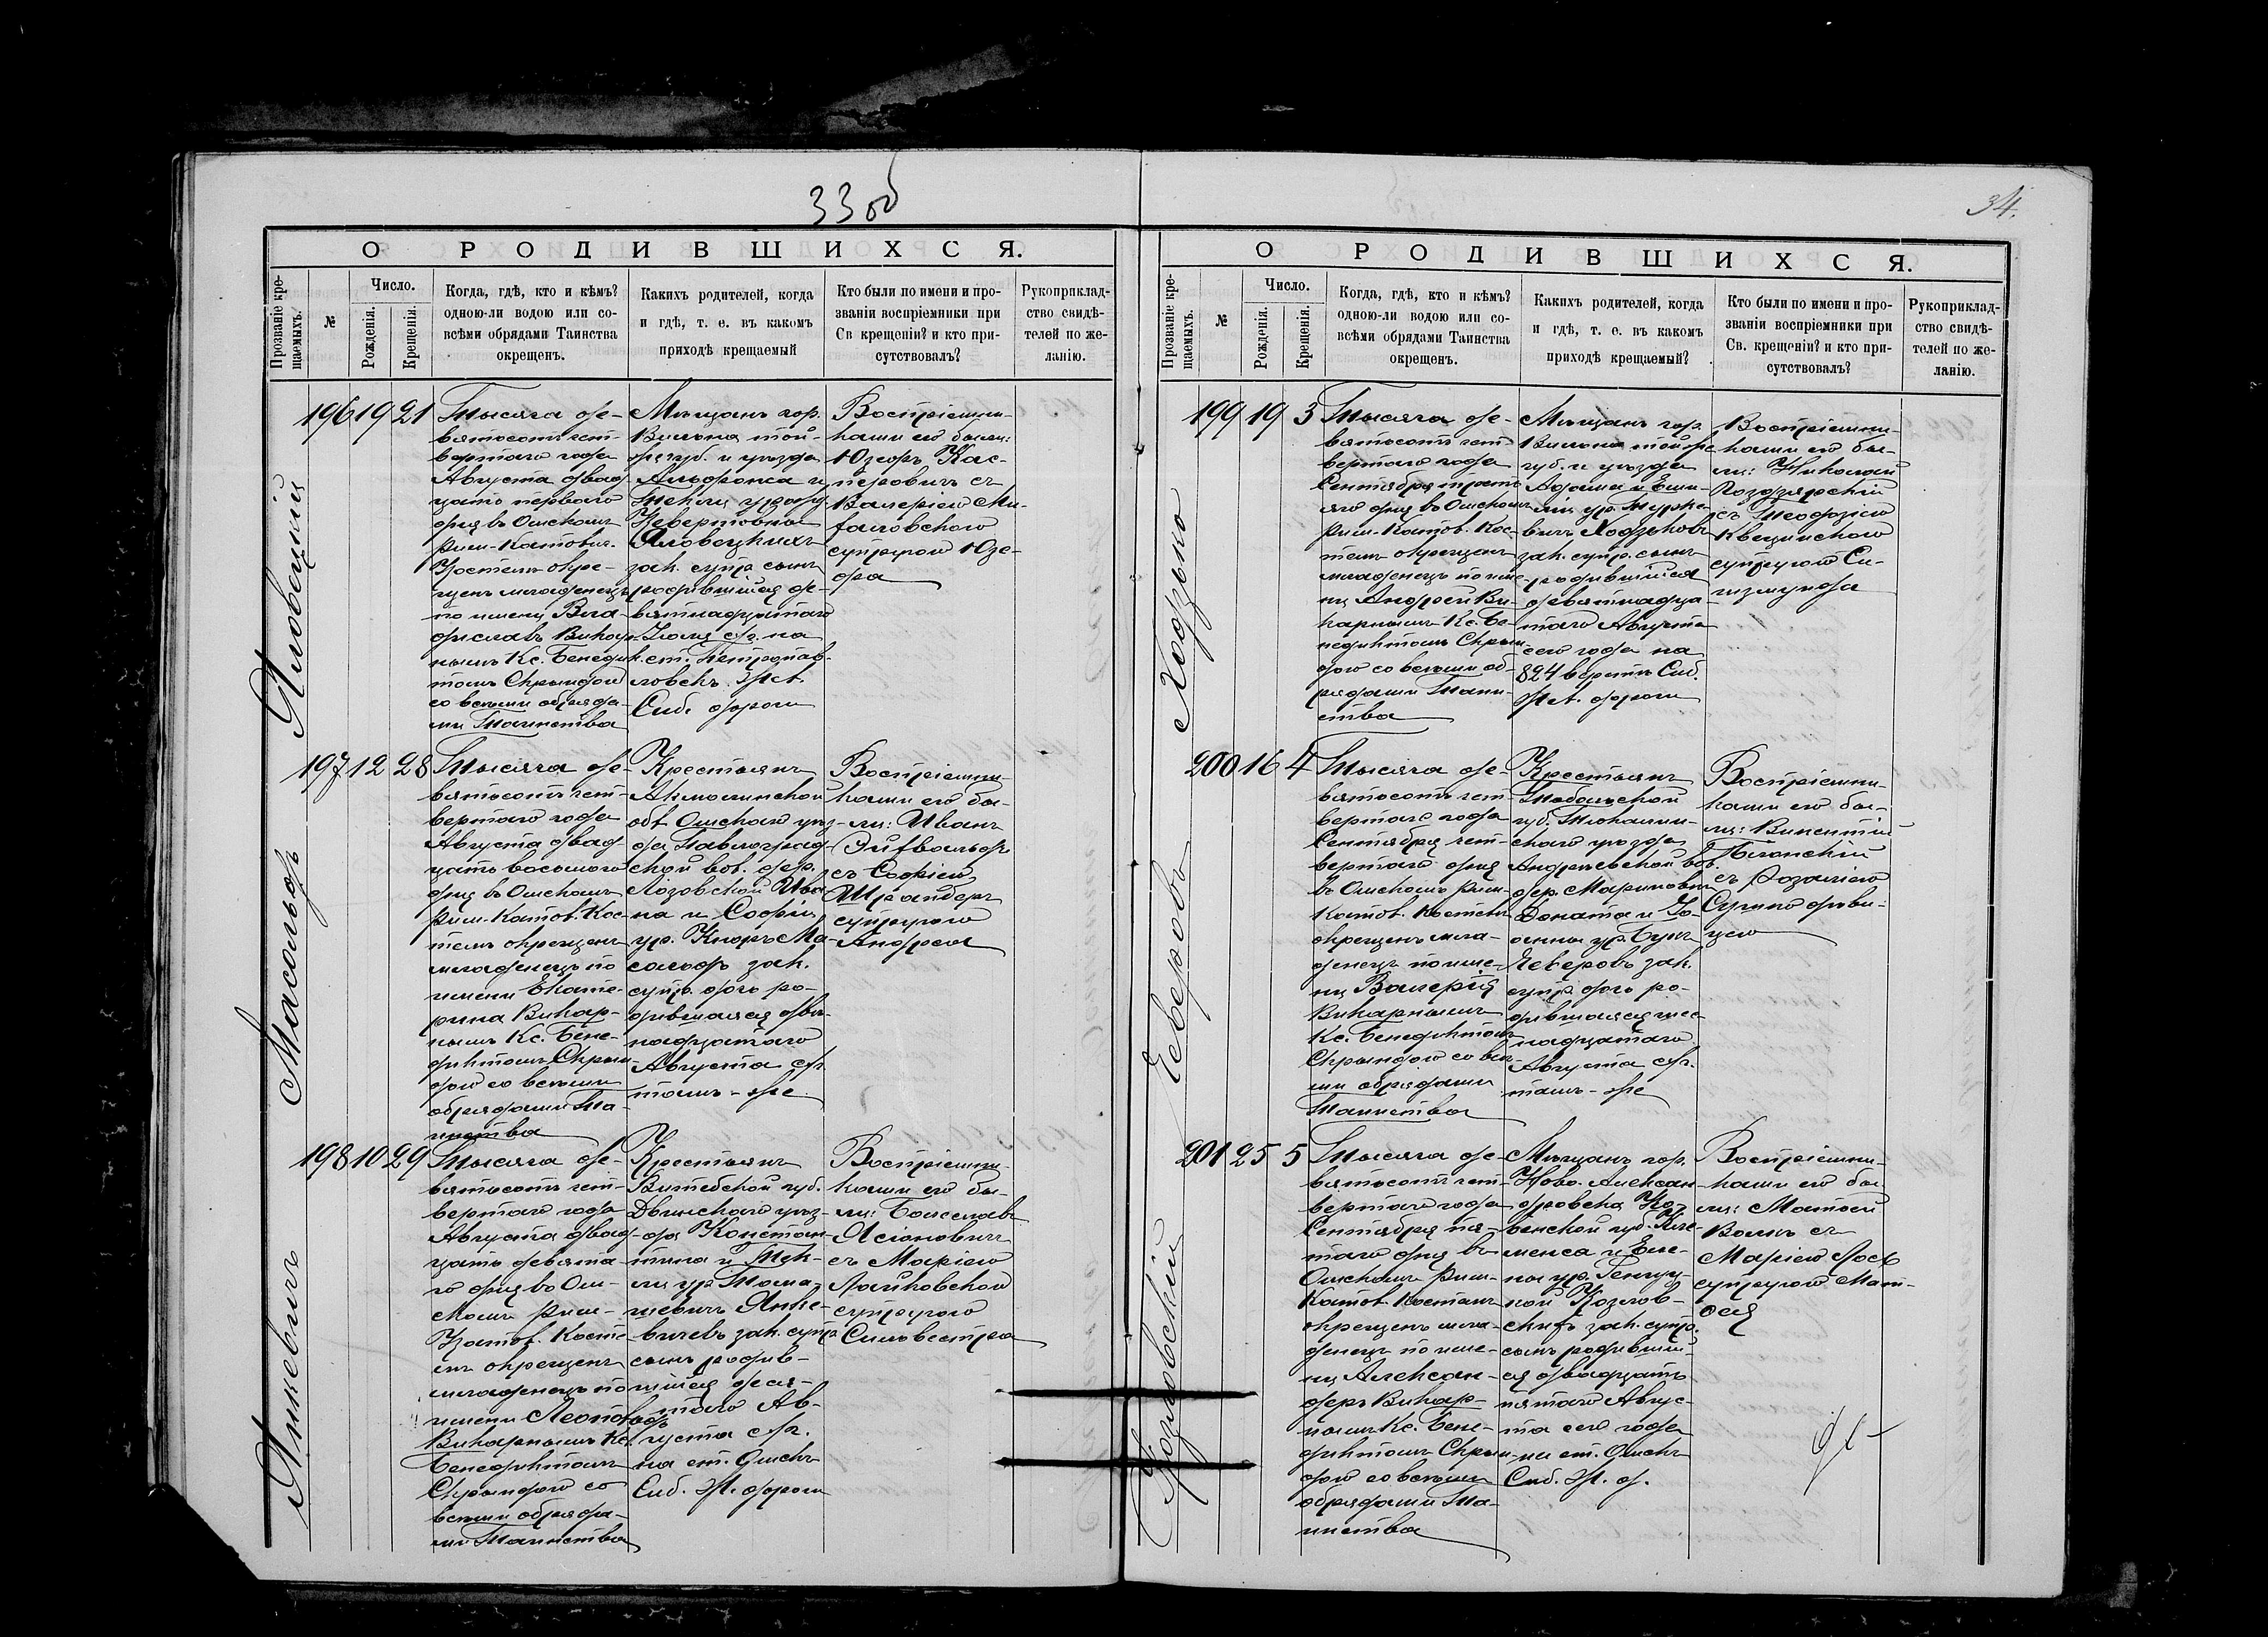 33 об
О РОДИВШИХСЯ.
Прозваніе кре-
щаемыхъ.
№
Число.
Рожденія.
Крещенія.
Когда, гдѣ, кто и кѣмъ?
одною-ли водою или со-
всѣми обрядами Таинства
окрещенъ.
Какихъ родителей, когда
и гдѣ, т. е. въ какомъ
приходѣ крещаемый
Кто были по имени и про-
званіи воспріемники при
Св крещеніи? и кто при-
сутствовалъ?
Рукоприклад-
ство свидѣ-
телей по же-
ланію.
Яловецкій
196 19 21
Тысяча де-
вятьсотъ чет-
вертаго года
Августа двад-
цать перваго
дня въ Омскомъ
Рим.-Католич.
Костелѣ окре-
щенъ младенецъ
по имени Вла-
диславъ Викар-
нымъ Кс. Бенедик-
томъ Скрындою
со всѣми обряда-
ми Таинства
Мѣщанъ гор.
Вильна той-
же губ. и уѣзда
Альфонса и
Теклы урожд.
Яловецкихъ
зак. супр. сынъ
родившійся де-
вятнадцатаго
Іюля с/г. на
ст. Петропав-
ловскъ Жел.
Сиб. дороги
Воспріемни-
ками его были:
Юзефъ Кас-
перовичъ съ
Валеріею Ми-
халовскою
супругою Юзе-
фа
Масальдъ
197 12 28
Тысяча де-
вятьсотъ чет-
вертаго года
Августа двад-
цать восьмаго
дня въ Омскомъ
Рим.-Катол. Кос-
телѣ окрещенъ
младенецъ по
имени Екате-
рина Викар-
нымъ Кс. Бене-
диктомъ Скрын-
дою со всѣми
обрядами Та-
инства
Крестьянъ
Акмолинской
обл. Омскаго уѣз-
да Павлоград-
ской вол. дер.
Лозовской Ива-
на и Софіи
ур. Кноръ Ма-
сальдъ зак.
супр. дочь ро-
дившаяся двѣ-
надцатаго
Августа с/г.
тамъ-же.
Воспріемни-
ками его бы-
ли: Иванъ
съ Софіею
супругою
Андрея
Янкевичъ
198 10 29
Тысяча де-
вятьсотъ чет-
вертаго года
Августа двад-
цать девята-
го дня въ Ом-
скомъ Рим.-
Катол. Косте-
лѣ окрещенъ
младенецъ по
имени Леопольдъ
Викарнымъ Кс.
Бенедиктомъ
Скрындою со
всѣми обряда-
ми Таинства
Крестьянъ
Витебской губ.
Двинскаго уѣз-
да Констан-
тина и Тек-
ли ур. Тома-
шевичъ Янке-
вичевъ зак. супр.
сынъ родив-
шійся деся-
таго Ав-
густа с/г.
на ст. Омскъ
Сиб. Ж. дороги
Воспріемни-
ками его бы-
ли: Болеславъ
Ясіановичъ
съ Маріею
Лайковскою
супругою
Сильвестра
34.
О РОДИВШИХСЯ.
Прозваніе кре-
щаемыхъ.
№
Число.
Рожденія.
Крещенія.
Когда, гдѣ, кто и кѣмъ?
одною-ли водою или со-
всѣми обрядами Таинства
окрещенъ.
Какихъ родителей, когда
и гдѣ, т. е. въ какомъ
приходѣ крещаемый?
Кто были по имени и про-
званіи воспріемники при
Св. крещеніи? и кто при-
сутствовалъ?
Рукоприклад-
ство свидѣ-
телей по же-
ланію.
Ходзько
199 19 3
Тысяча де-
вятьсотъ чет-
вертаго года
Сентября треть-
яго дня въ Омскомъ
Рим.-Катол. Кос-
телѣ окрещенъ
младенецъ по име-
ни Андрей Ви-
карнымъ Кс. Бе-
недиктомъ Скрын-
дою со всѣми об-
рядами Таин-
ства
Мѣщанъ гор.
Вильна той-же
губ. и уѣзда
Адама и Еми-
ліи ур. Юрке-
вичъ Ходзьковъ
зак. супр. сынъ
родившійся
девятнадца-
таго Августа
сего года на
824 верстѣ Сиб.
Жел. дороги
Воспріемни-
ками его бы-
ли: Николай
съ Теофилію
Квецинскою
супругою Си-
гизмунда
Чеверовъ
200 16 4
Тысяча де-
вятьсотъ чет-
вертаго года
Сентября чет-
вертаго дня
въ Омскомъ Рим.-
Катол. Костелѣ
окрещенъ мла-
денецъ по име-
ни Валерія
Викарнымъ
Кс. Бенедиктомъ
Скрындою со всѣ-
ми обрядами
Таинства
Крестьянъ
Тобольской
губ. Тюкалин-
скаго уѣзда
Андреевской вол.
дер. Мариновки
Доната и Іо-
анны ур. Букъ
Чеверовъ зак.
супр. дочь ро-
дившаяся шес-
надцатаго
Августа с/г.
тамъ-же
Воспріемни-
ками его бы-
ли: Викентій
съ Розаліею
дѣви-
цею
Козловскій
201 25 5
Тысяча де-
вятьсотъ чет-
вертаго года
Сентября пя-
таго дня въ
Омскомъ Рим.-
Катол. Костелѣ
окрещенъ мла-
денецъ по име-
ни Алексан-
деръ Викар-
нымъ Кс. Бене-
диктомъ Скрын-
дою со всѣми
обрядами Та-
инства
Мѣщанъ гор.
Ново-Алексан-
дровска Ко-
венской губ. Кле-
менса и Еле-
ны ур.
Козлов-
скихъ зак. супр.
сынъ родившій-
ся двадцать
пятаго Авгус-
та сего года
на ст. Омскъ
Сиб. Ж. д.
Воспріемни-
ками его бы-
ли: Матвей
Волкъ съ
Маріею
супругою Мат-
фея